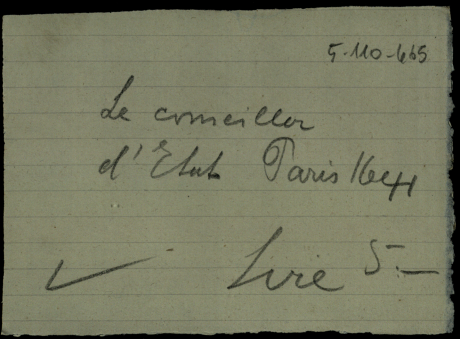 5-110-665
Le conseiller
d'Etat Paris 1641
Lire 5.—